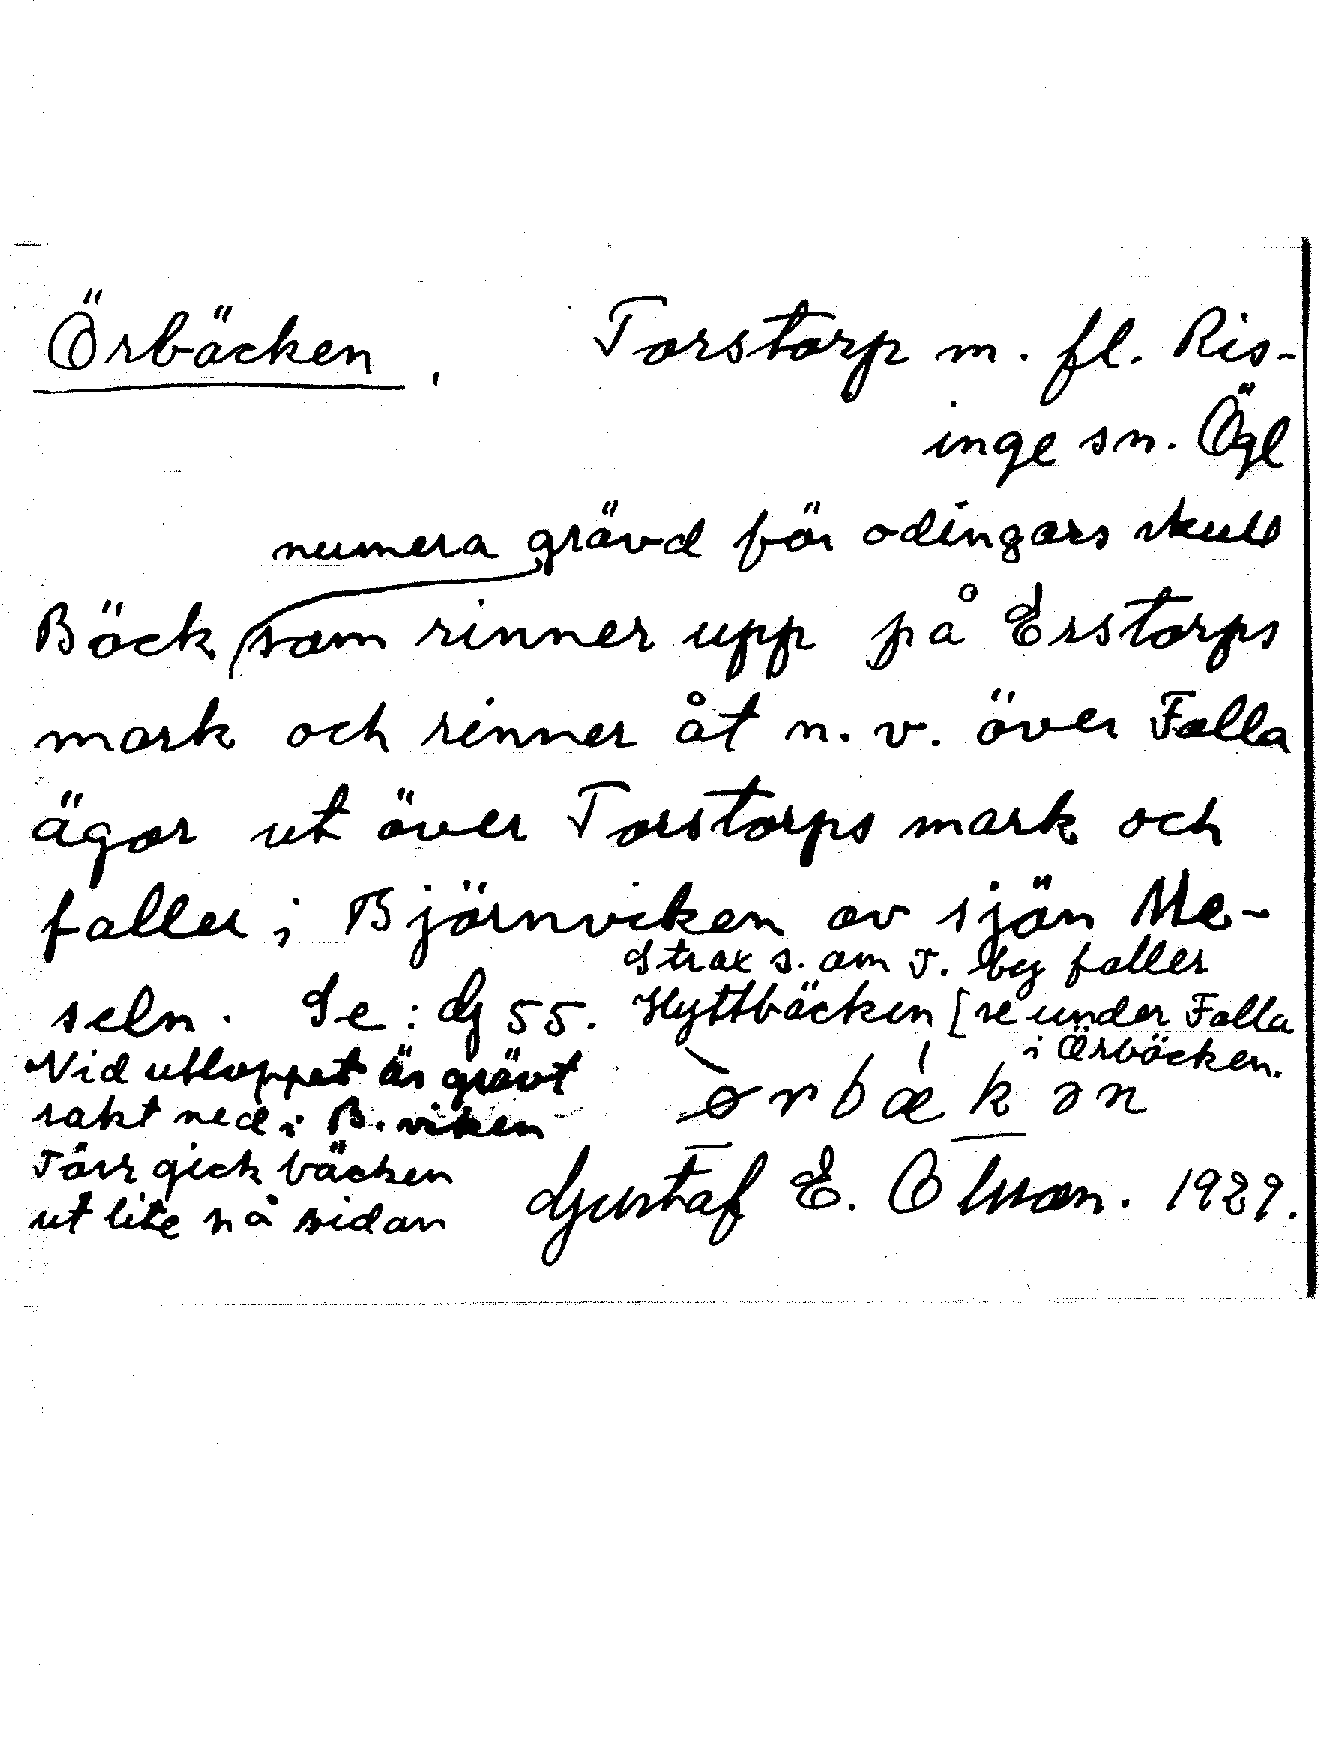 Örbäcken. Torstorp m. fl. Ris-
inge sn. Ögl
numera grävd för odlingars skull
Bäck som rinner upp på Erstorps
mark och rinner åt n. v. över Falla
ägor ut över Torstorps mark och
faller i Björnviken av sjön Me-
seln. Se: dj 55.
Strax s. om T. by faller
Hyttbäcken [se under Falla
i Örbäcken.
Vid utloppet är grävt
rakt ned i B. viken
Förr gick bäcken
ut lite nå sidan
ørbækən
Gustaf E. Olsson. 1929.